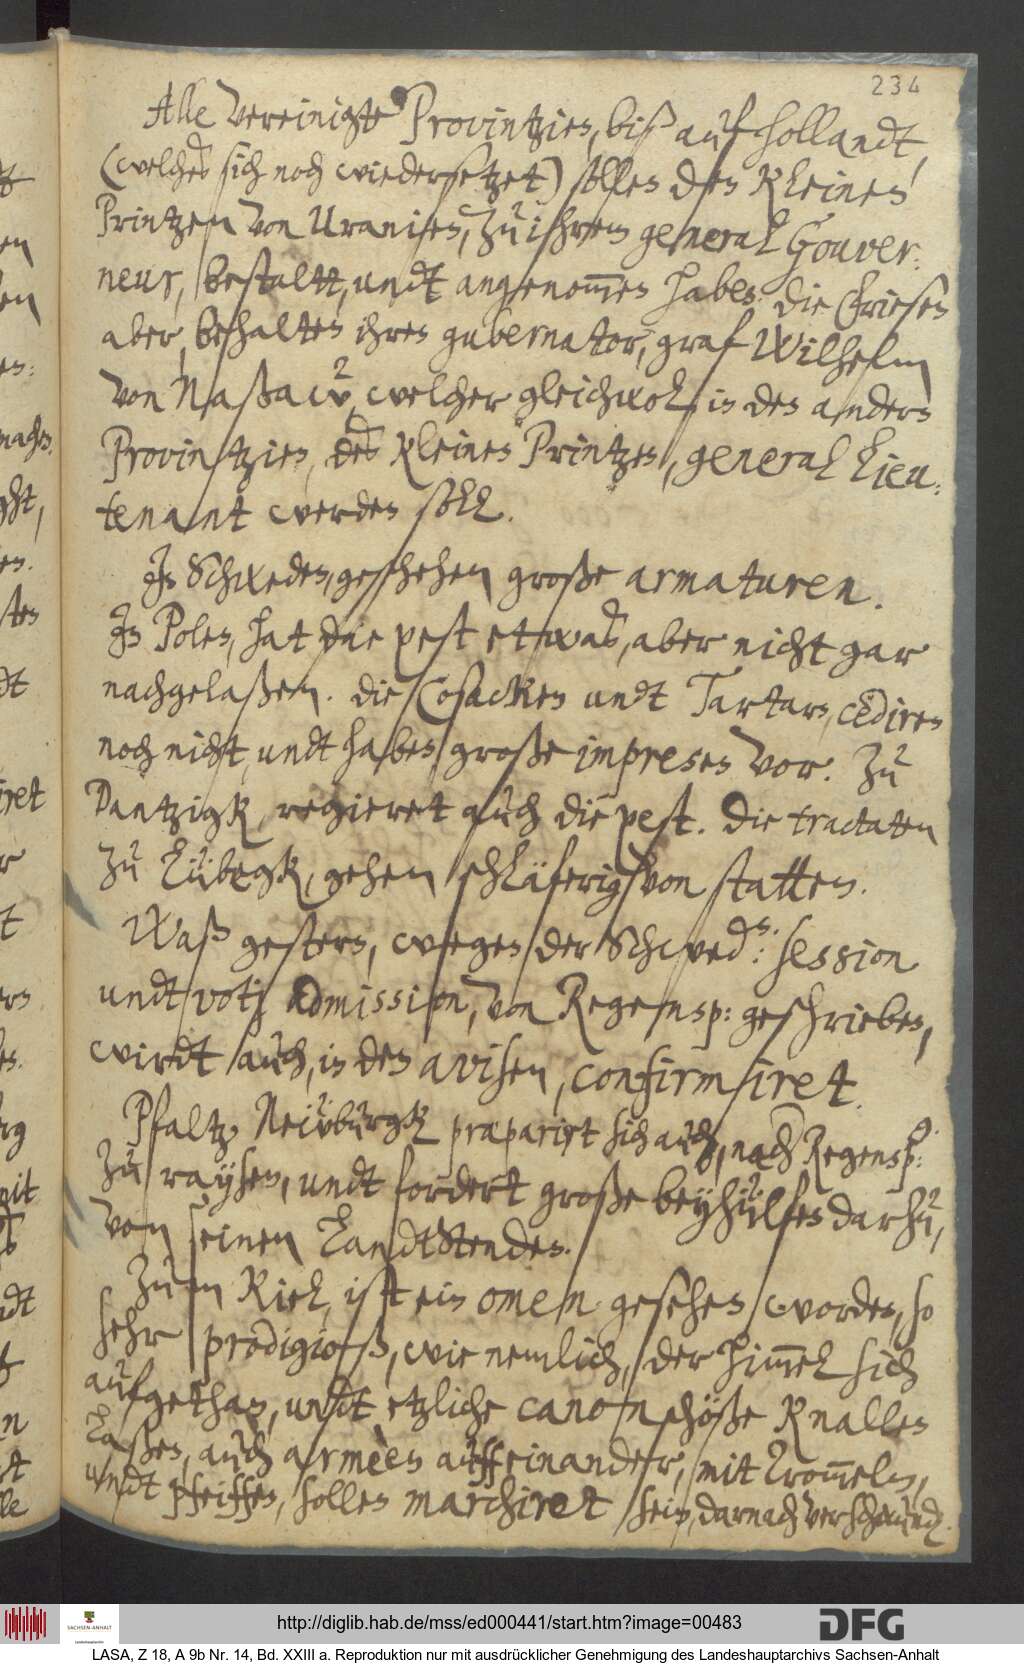 234
Alle vereinigte Provintzien, biß auf Hollandt,
(welches sich noch wiedersetzet) sollen den kleinen
Printzen von Uranien, zu ihrem general Gouver:
neur, bestaltt, undt angenommen haben. die Friesen
aber, behalten ihren gubernator, graf Wilhelm
von Naßaw, welcher gleichwol, in den andern
Provintzien, des kleinen Printzen, general Lieu:
tenant werden soll.
In Schweden, geschehen große armaturen.
In Polen, hat die pest etwas, aber nicht gar
nachgelaßen. die Cosacken undt Tartarn, cediren
noch nicht, undt haben große impresen vor. Zu
Dantzigk, regieret auch die pest. Die tractaten
zu Lübegk, gehen schläferig von statten.
Waß gestern, wegen der Schwed:en session
undt votj admission, von Regensp: geschrieben,
wirdt auch, in den avisen, confirmiret.
Pfaltz Neuburgk præparirt sich auch, nach Regensp:g
zu raysen, undt fordert große beyhülfen darzu,
von seinen Landtstenden.
Zum Kiel, ist ein omen gesehen worden, so
sehr prodigioß, wie nemlich, der himmel sich
aufgethan, undt etzliche canonschöße knallen
laßen, auch armeen auffeinander, mit Trommeln,
undt pfeiffen, sollen marchiret sein, darnach verschwundn.
http://diglib.hab.de/mss/ed000441/start.htm?image=00483
SACHSEN-ANHALT
Landeshauptarchiv
DFG
LASA, Z 18, A 9b Nr. 14, Bd. XXIII a. Reproduktion nur mit ausdrücklicher Genehmigung des Landeshauptarchivs Sachsen-Anhalt